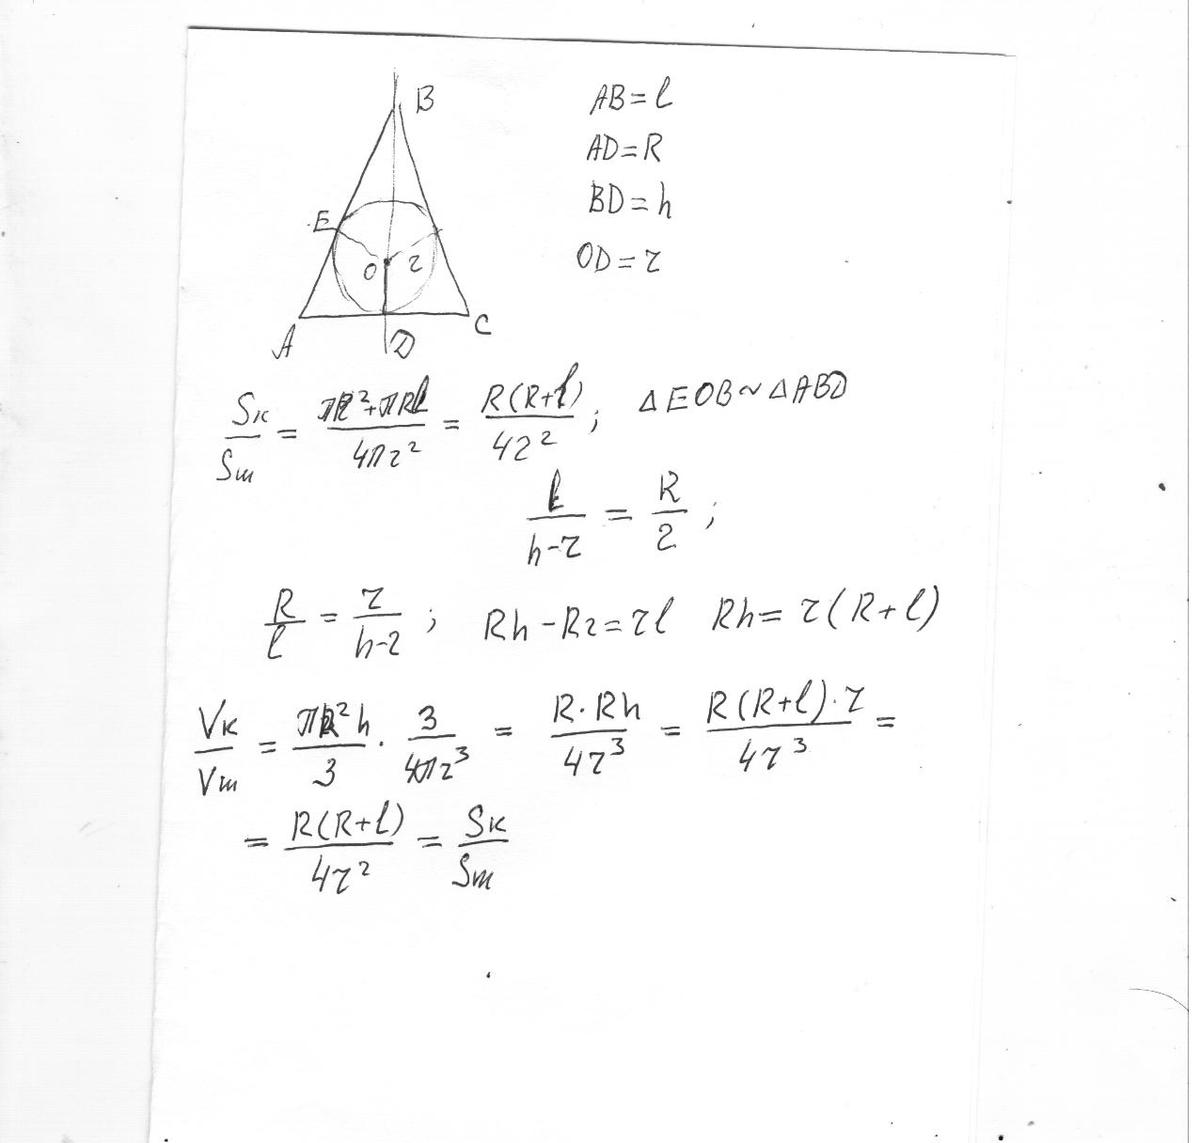 B
E
O r
A D C
AB = l
AD = R
BD = h
OD = r
Sк/Sш = (πR²+πRl)/(4πr²) = R(R+l)/(4r²); ΔEOB ~ ΔABD
l/(h-r) = R/r;
R/l = r/(h-r); Rh - Rr = rl Rh = r(R+l)
Vк/Vш = πR²h/3 · 3/(4πr³) = R·Rh/(4r³) = R(R+l)·r/(4r³) =
= R(R+l)/(4r²) = Sк/Sш